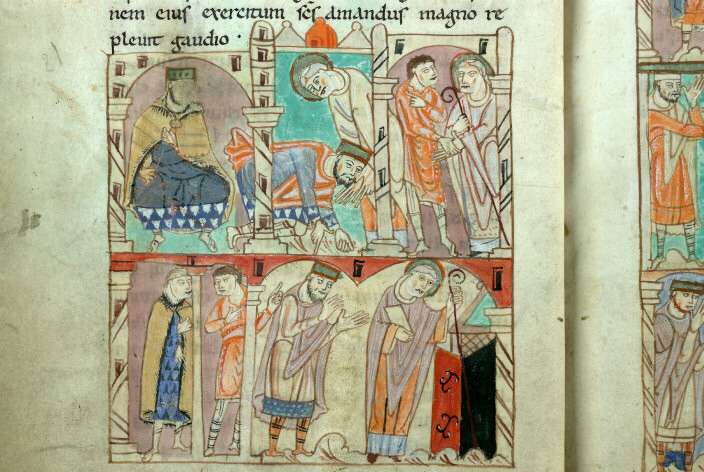 nem eius exercitum scs amandus magno re
pleuit gaudio ·